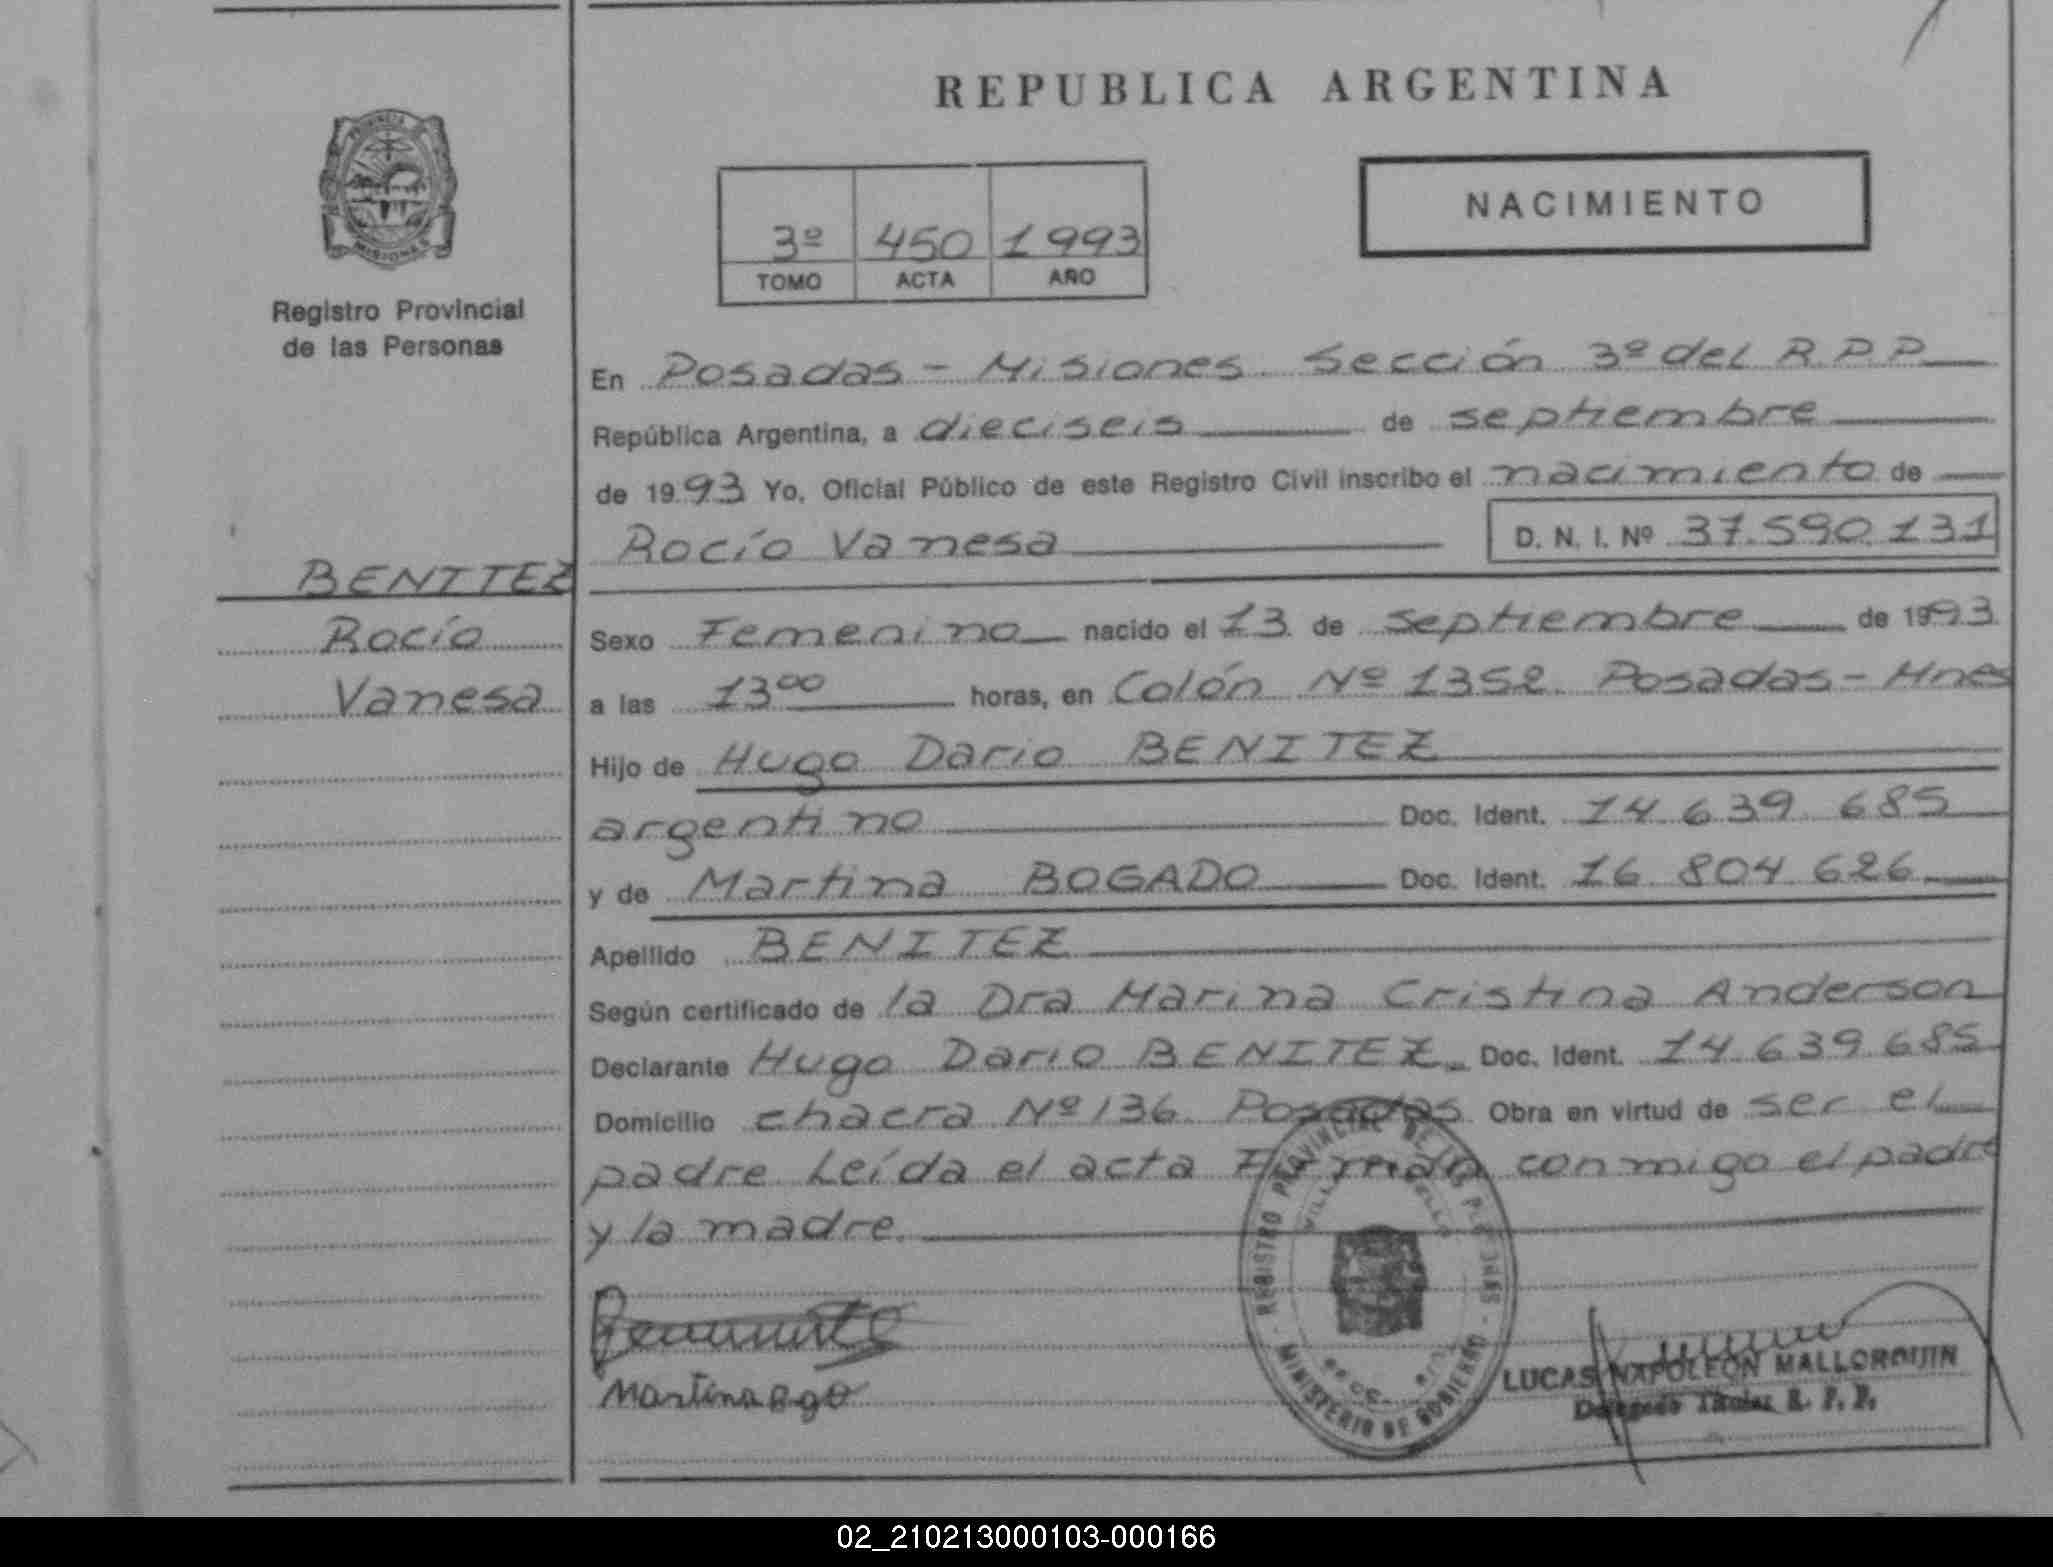 REPUBLICA ARGENTINA
PROVINCIA DE MISIONES
Registro Provincial
de las Personas
NACIMIENTO
3º 450 1993
TOMO ACTA AÑO
BENITEZ
Rocío
Vanesa
En Posadas - Misiones. Sección 3º del R.P.P.
República Argentina, a dieciseis de septiembre
de 1993 Yo, Oficial Público de este Registro Civil inscribo el nacimiento de
Rocío Vanesa D. N. I. Nº 37.590.131
Sexo Femenino nacido el 13 de septiembre de 1993
a las 13 00 horas, en Colón Nº 1352. Posadas - Mnes
Hijo de Hugo Dario BENITEZ
argentino Doc. Ident. 14.639.685
y de Martina BOGADO Doc. Ident. 16.804.626
Apellido BENITEZ
Según certificado de la Dra Marina Cristina Anderson
Declarante Hugo Dario BENITEZ. Doc. Ident. 14.639.685
Domicilio chacra Nº 136. Posadas Obra en virtud de ser el
padre. Leída el acta Firman conmigo el padre
y la madre.
REGISTRO PROVINCIAL DE LAS PERSONAS - MINISTERIO DE GOBIERNO
Martina
LUCAS NAPOLEON MALLORQUIN
Delegado Titular R. P. P.
02_210213000103-000166